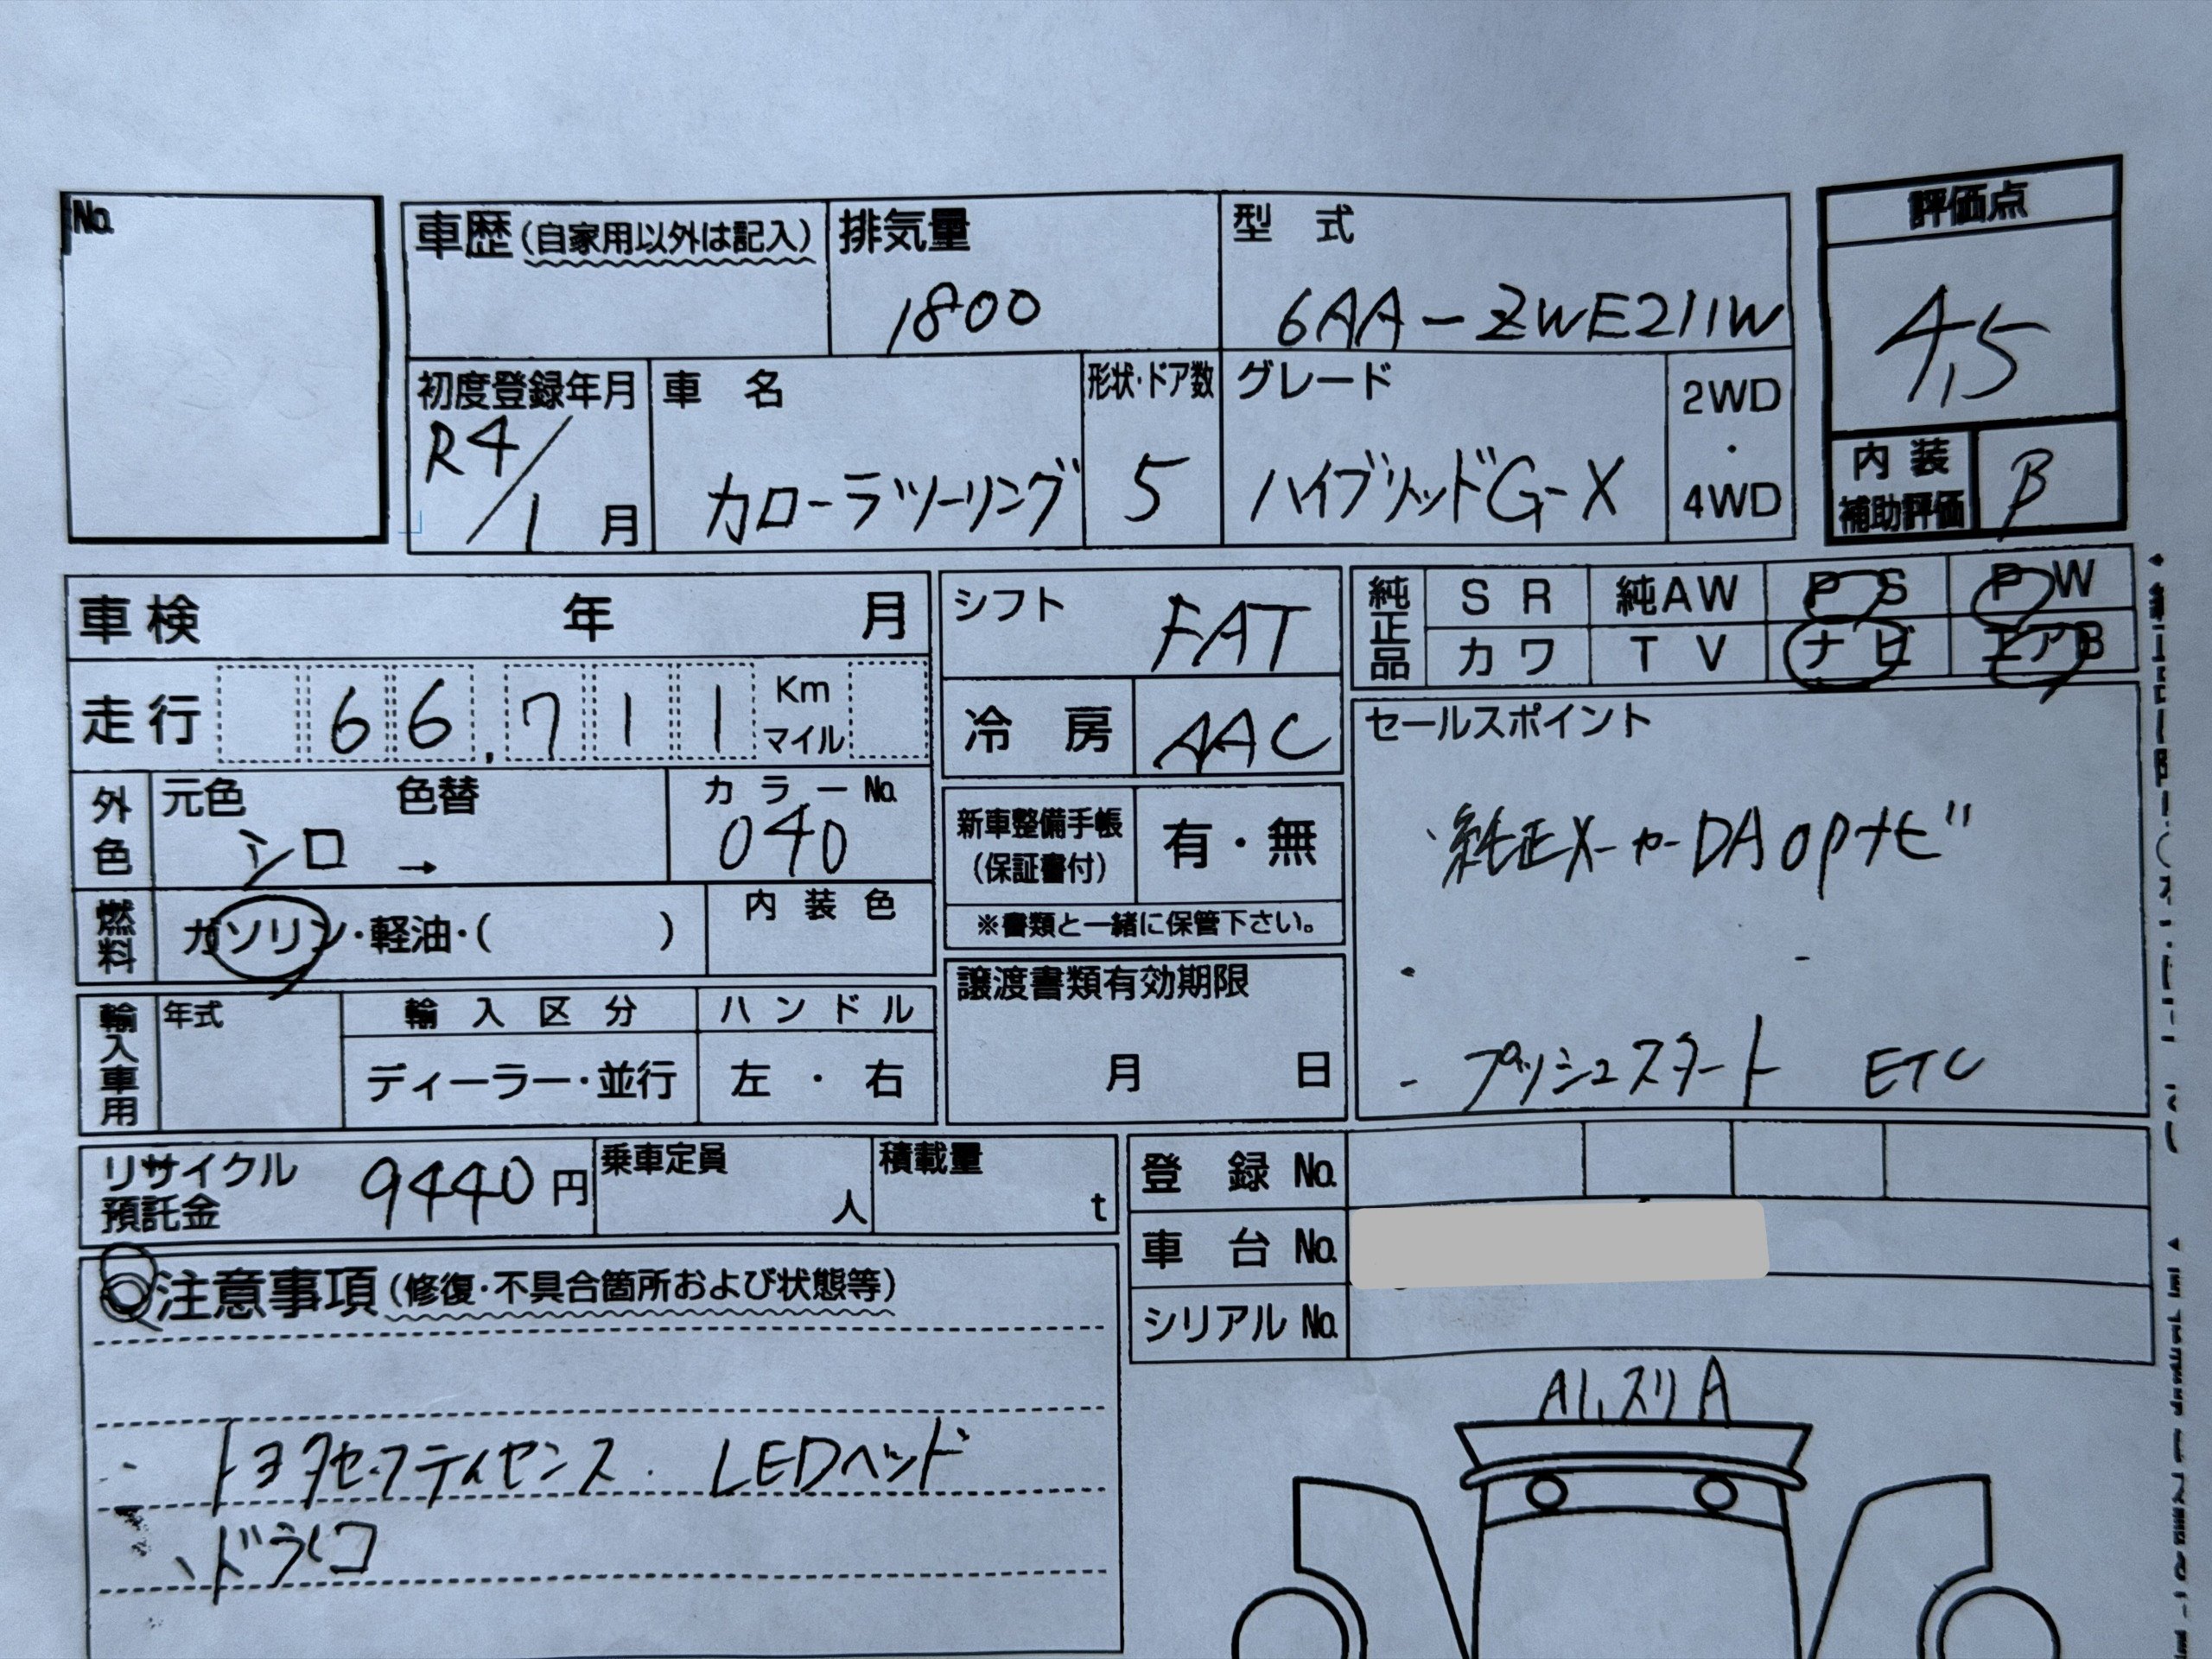 No.
車歴(自家用以外は記入)
排気量
1800
型 式
6AA-ZWE211W
評価点
4.5
初度登録年月
R4/1月
車 名
カローラツーリング
形状・ドア数
5
グレード
ハイブリッドG-X
2WD
・
4WD
内装
補助評価
B
車検 年 月
走行 66,711 Km マイル
シフト FAT
冷 房 AAC
純正品
SR 純AW PS PW
カワ TV ナビ エアB
セールスポイント
・純正メーカーDAOPナビ
- プッシュスタート ETC
外色
元色 色替
シロ →
カラーNo.
040
燃料
ガソリン・軽油・( )
内装色
新車整備手帳
(保証書付)
有・無
※書類と一緒に保管下さい。
譲渡書類有効期限
月 日
輸入車用
年式
輸入区分
ディーラー・並行
ハンドル
左・右
リサイクル
預託金
9440円
乗車定員
人
積載量
t
登 録 No.
車 台 No.
シリアル No.
◎注意事項(修復・不具合箇所および状態等)
トヨタセーフティセンス. LEDヘッド
、ドラレコ
A1,スリA